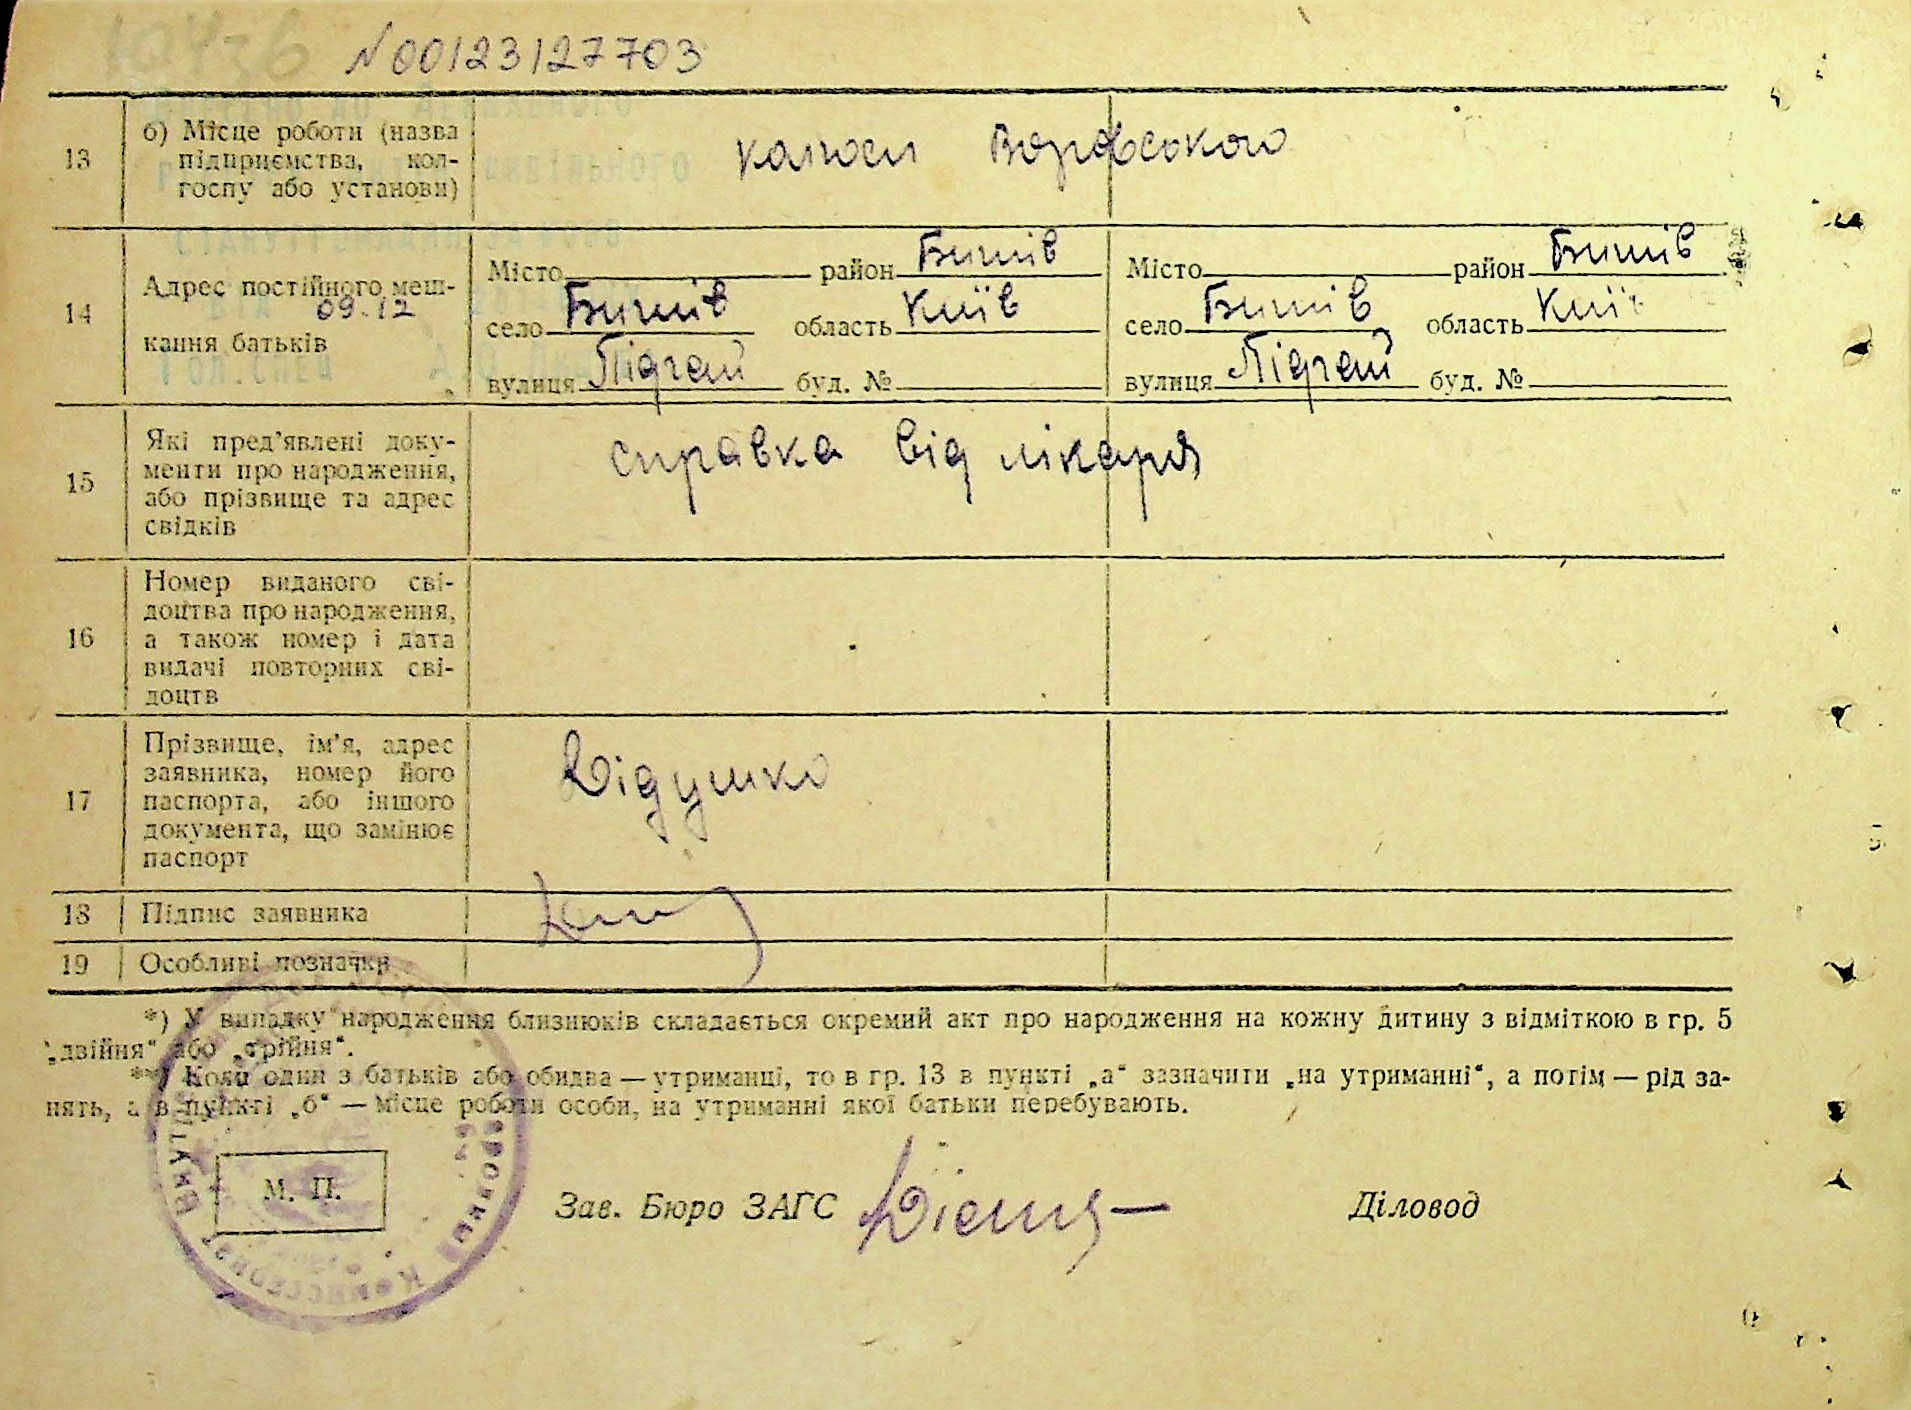 N00123127703
13
б) Місце роботи (назва
підприємства, кол-
госпу або установи)
14
Адрес постійного меш-
09.12
кання батьків
Місто район Бишів Місто район Бишів
село Бишів область Київ село Бишів область Київ
вулиця Підгай буд. № вулиця Підгай буд. №
15
Які пред'явлені доку-
менти про народження,
або прізвище та адрес
свідків
справка від лікаря
16
Номер виданого сві-
доцтва про народження,
а також номер і дата
видачі повторних сві-
доцтв
17
Прізвище, ім'я, адрес
заявника, номер його
паспорта, або іншого
документа, що замінює
паспорт
Дідушко
18 Підпис заявника
19 Особливі позначки
*) У випадку народження близнюків складається окремий акт про народження на кожну дитину з відміткою в гр. 5
„двійня“ або „трійня“.
**) Коли один з батьків або обидва — утриманці, то в гр. 13 в пункті „а“ зазначити „на утриманні“, а потім — рід за-
нять, а в пункті „б“ — місце роботи особи, на утриманні якої батьки перебувають.
М. П.
Зав. Бюро ЗАГС Діловод